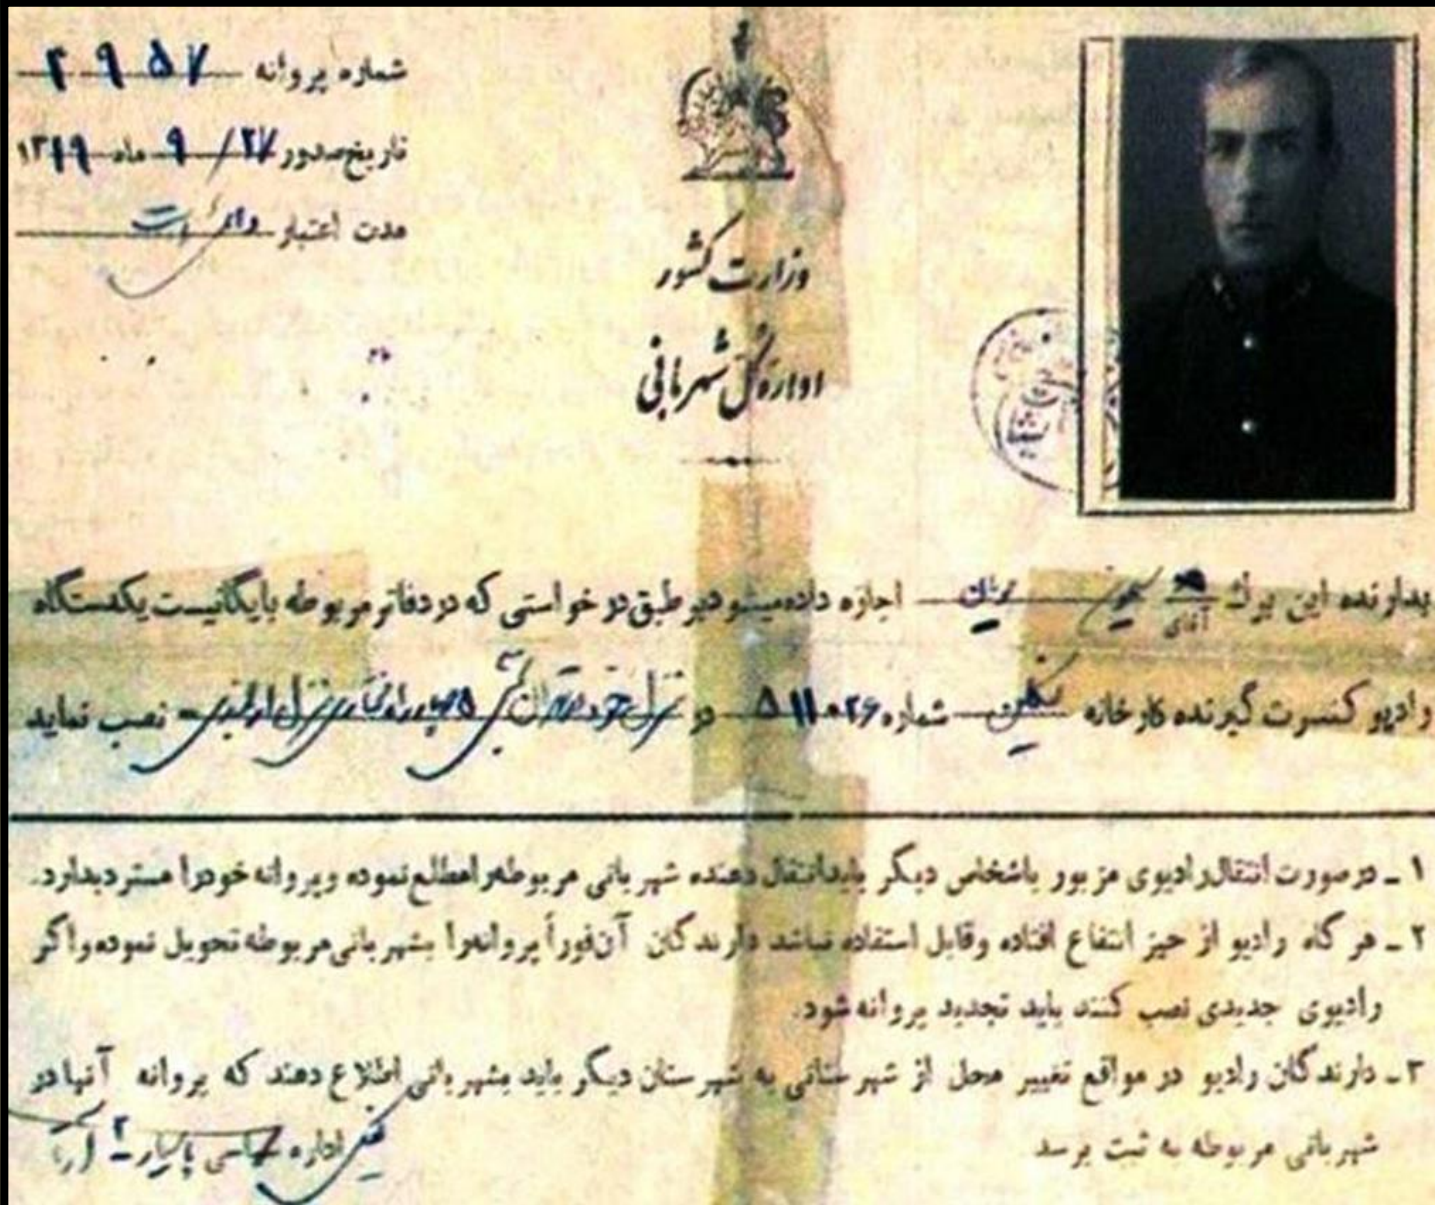 شماره پروانه ۲۹۵۷
تاریخ صدور ۲۷/ ۹ ماه ۱۳۱۹
مدت اعتبار دائمی است
وزارت کشور
اداره کل شهربانی
بدارنده این برك آقای اجازه داده میشود برطبق درخواستی که در دفاتر مربوطه بایگانیست یکدستگاه
رادیو کنسرت گیرنده کارخانه شماره ۵۱۱۰۲۶ در منزل خود در تهران نصب نماید
۱ ـ درصورت انتقال رادیوی مزبور باشخاص دیگر باید انتقال دهنده شهربانی مربوطه را مطلع نموده و پروانه خودرا مسترد بدارد.
۲ ـ هرگاه رادیو از حیز انتفاع افتاده وقابل استفاده نباشد دارندگان آن فوراً پروانه را بشهربانی مربوطه تحویل نموده واگر
رادیوی جدیدی نصب کنند باید تجدید پروانه شود.
۳ ـ دارندگان رادیو در مواقع تغییر محل از شهرستانی به شهرستان دیگر باید بشهربانی اطلاع دهند که پروانه آنها در
شهربانی مربوطه به ثبت برسد
اداره سیاسی پاسیار ۲